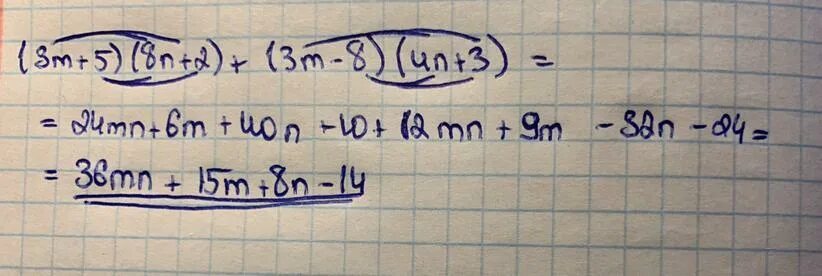 (3m+5)(8n+2)+(3m-8)(4n+3)=
=24mn+6m+40n+10+12mn+9m-32n-24=
=36mn+15m+8n-14